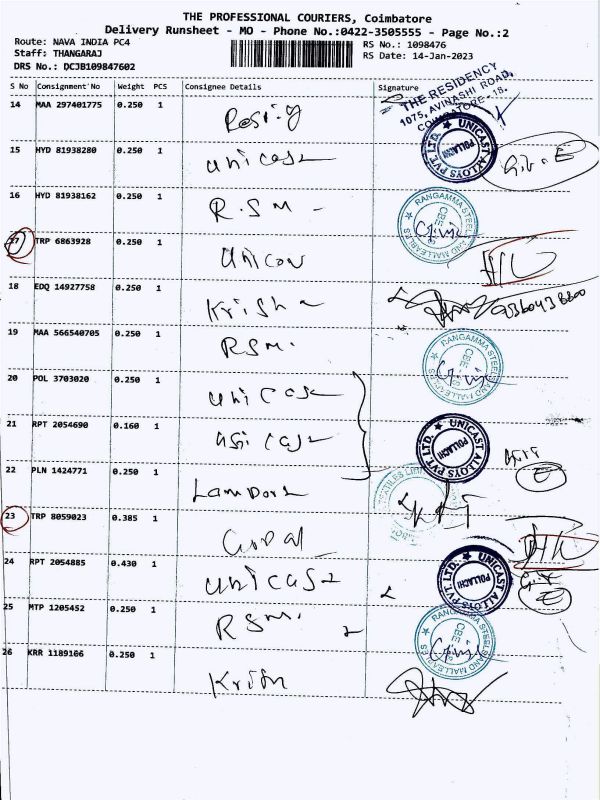 THE PROFESSIONAL COURIERS, Coimbatore
Delivery Runsheet - MO - Phone No.:0422-3505555 - Page No.:2
Route: NAVA INDIA PC4
RS No.: 1098476
Staff: THANGARAJ
RS Date: 14-Jan-2023
DRS No.: DCJB109847602
S No Consignment No Weight PCS Consignee Details Signature
THE RESIDENCY
1075, AVINASHI ROAD,
COIMBATORE - 18.
14 MAA 297401775 0.250 1
UNICAST ALLOYS PVT. LTD. ★ POLLACHI
15 HYD 81938280 0.250 1 unicast
16 HYD 81938162 0.250 1 R.S.M -
RANGAMMA STEELS AND MALLEABLES CBE
17 TRP 6863928 0.250 1 Unicon
18 EDQ 14927758 0.250 1 Krishna
19 MAA 566540705 0.250 1 RSM.
RANGAMMA STEELS AND MALLEABLES CBE
20 POL 3703020 0.250 1 unicast
21 RPT 2054690 0.160 1 unicast
UNICAST ALLOYS PVT. LTD. ★ POLLACHI
22 PLN 1424771 0.250 1
23 TRP 8059023 0.385 1 Gopal
24 RPT 2054885 0.430 1 unicast
UNICAST ALLOYS PVT. LTD. ★ POLLACHI
25 MTP 1205452 0.250 1 RSM.
RANGAMMA STEELS AND MALLEABLES CBE
26 KRR 1189106 0.250 1 Krish